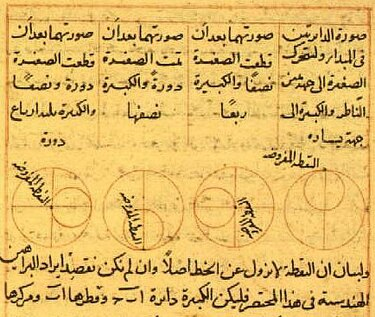 صورة الدايرتين
في المبدا ولتتحرك
الصغيرة الى جهة يمين
الناظر والكبيرة الى
جهة يساره
صورتهما بعد أن
قطعت الصغيرة
نصفًا والكبيرة
ربعًا
صورتهما بعد أن
تمت الصغيرة
دورةً والكبيرة
نصفها
صورتهما بعد أن
قطعت الصغيرة
دورة ونصفًا
والكبيرة ثلثة ارباع
دورة
النقطة المفروضة
النقطة المفروضة
النقطة المفروضة
النقطة المفروضة
ولبيان ان النقطة لا تزول عن الخط اصلاً وان لم نكن نقصد ايراد البراهين
الهندسية في هذا المختصر فليكن الكبيرة دايرة اب ح وقطرها اب ومركزها